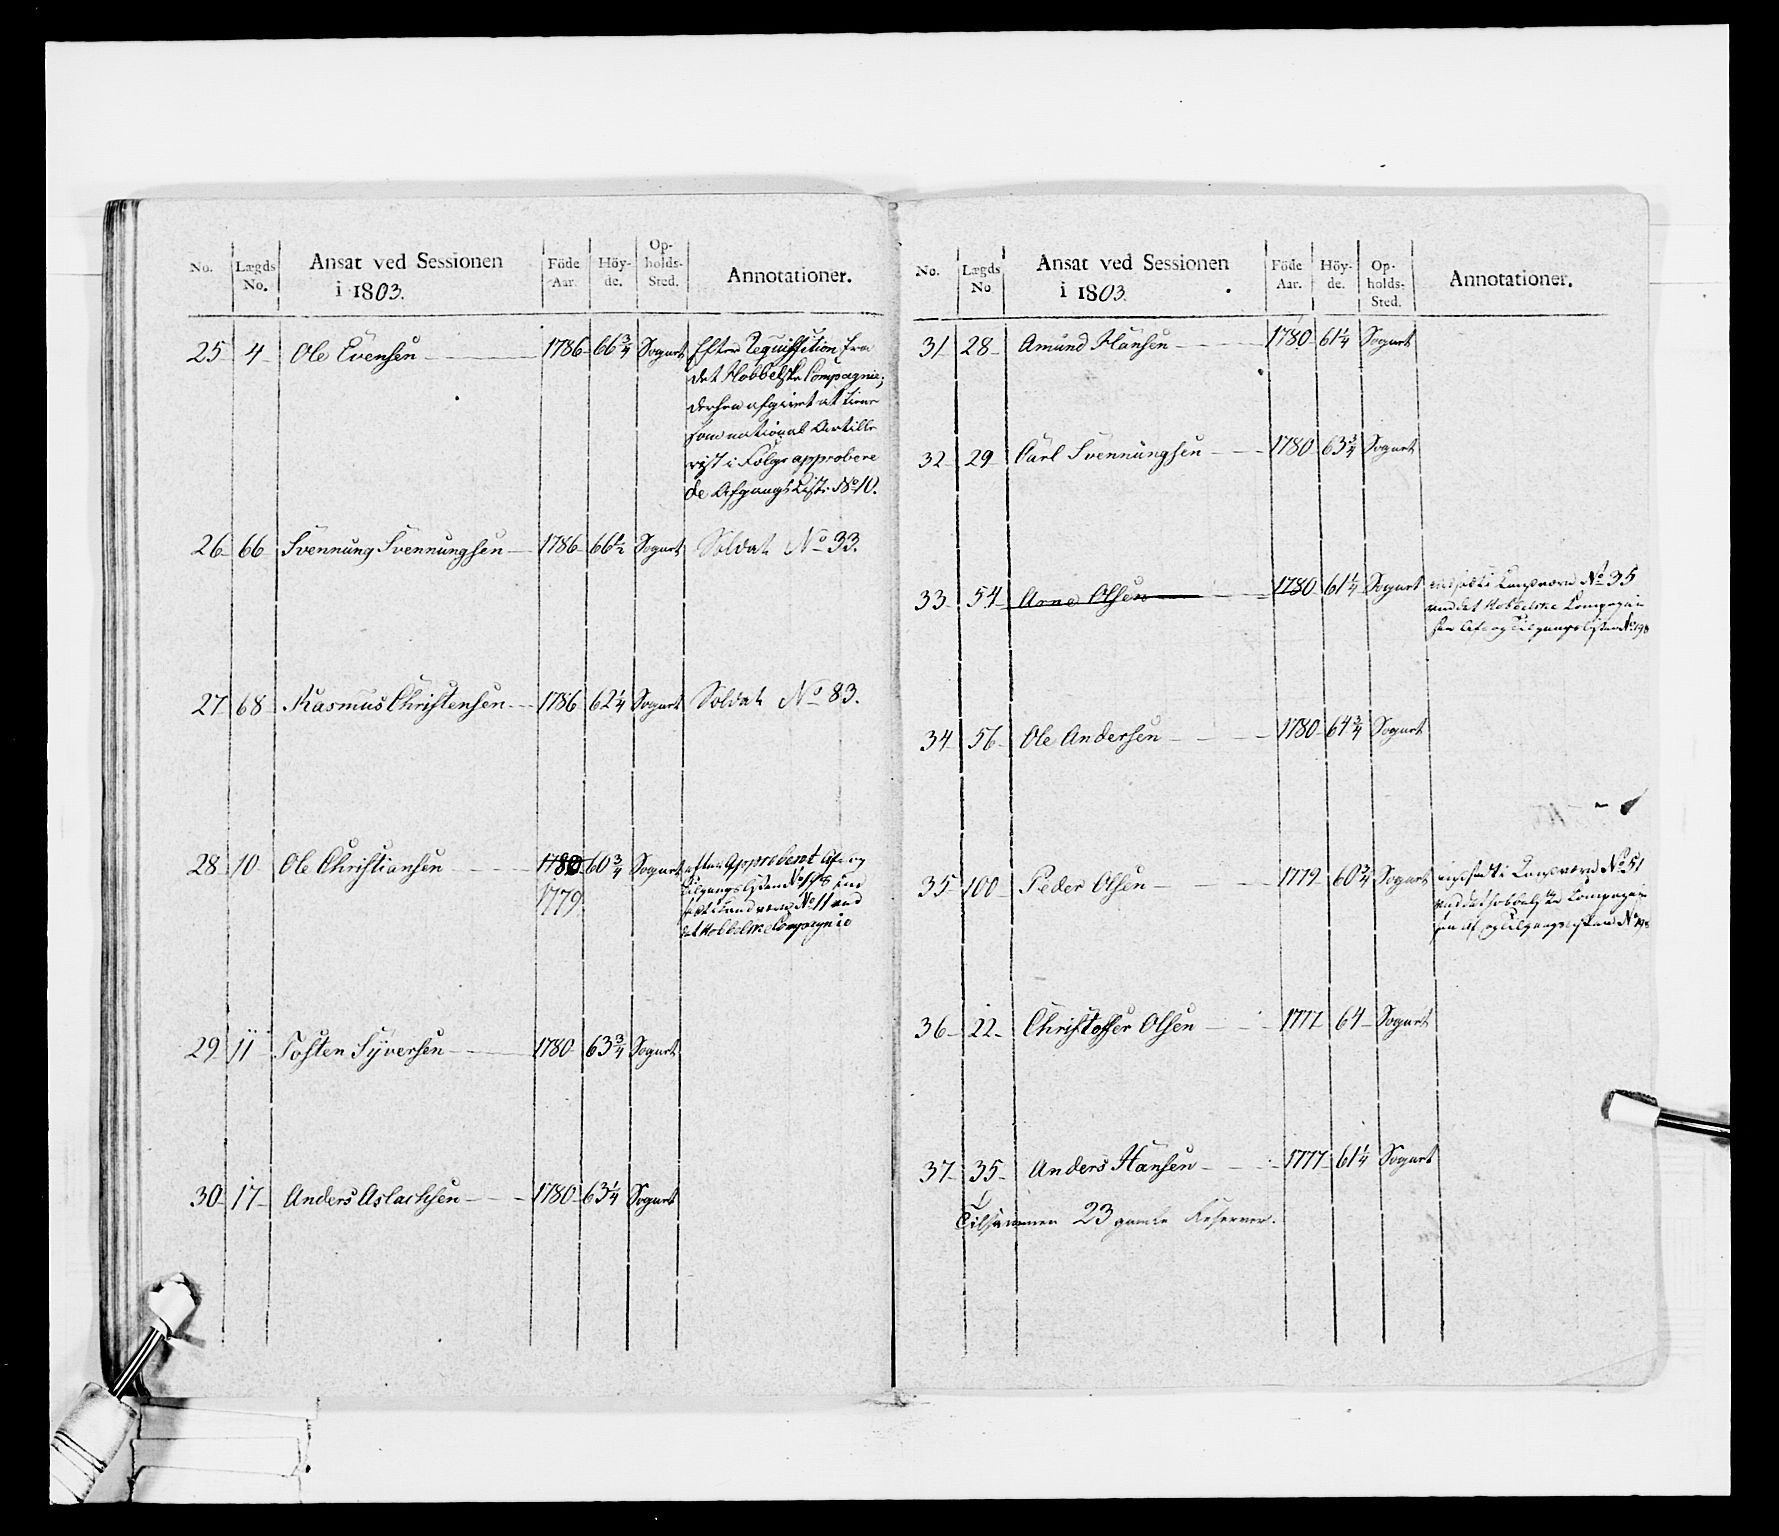 No. Lægds No. Ansat ved Sessionen i 1803. Föde Aar. Höy-de. Op-holds-Sted. Annotationer.
25 4 Ole Evensen 1786 66 3/4 Sognet Efter Requisition fra
det Hobbelske Compagnie;
derfra afgivet at tiene
som national Artille
rist i Følge approbere
de Afgangs Liste No 10.
26 66 Svennung Svennungsen 1786 66 1/2 Sognet Soldat No 33.
27 68 Rasmus Christensen 1786 62 1/4 Sognet Soldat No 83.
28 10 Ole Christiansen 1780 60 3/4 Sognet efter Approbent Af og
1779 Tilgangslisten No ind
sadt i Landværn No 11 ved
det Hobbelske Compagnie
29 11 Tosten Syversen 1780 63 3/4 Sognet
30 17 Anders Aslachsen 1780 63 1/4 Sognet
No. Lægds No Ansat ved Sessionen i 1803. Föde Aar. Höy-de. Op-holds-Sted. Annotationer.
31 28 Amund Hansen 1780 61 1/4 Sognet
32 29 Carl Svennungsen 1780 63 3/4 Sognet
33 54 Arne Olsen 1780 61 1/4 Sognet indsadt i Landværn No 35
ved det Hobbelske Compagni
Af og Tilgangslisten No 198
34 56 Ole Andersen 1780 64 3/4 Sognet
35 100 Peder Olsen 1779 60 3/4 Sognet indsadt i Landværn No 51
ved det Hobbelske Compagni
Af og Tilgangslisten No 198
36 22 Christoffer Olsen 1777 64 Sognet
37 35 Anders Hansen 1777 61 1/4 Sognet
Tilsammen 23 gamle Reserver.